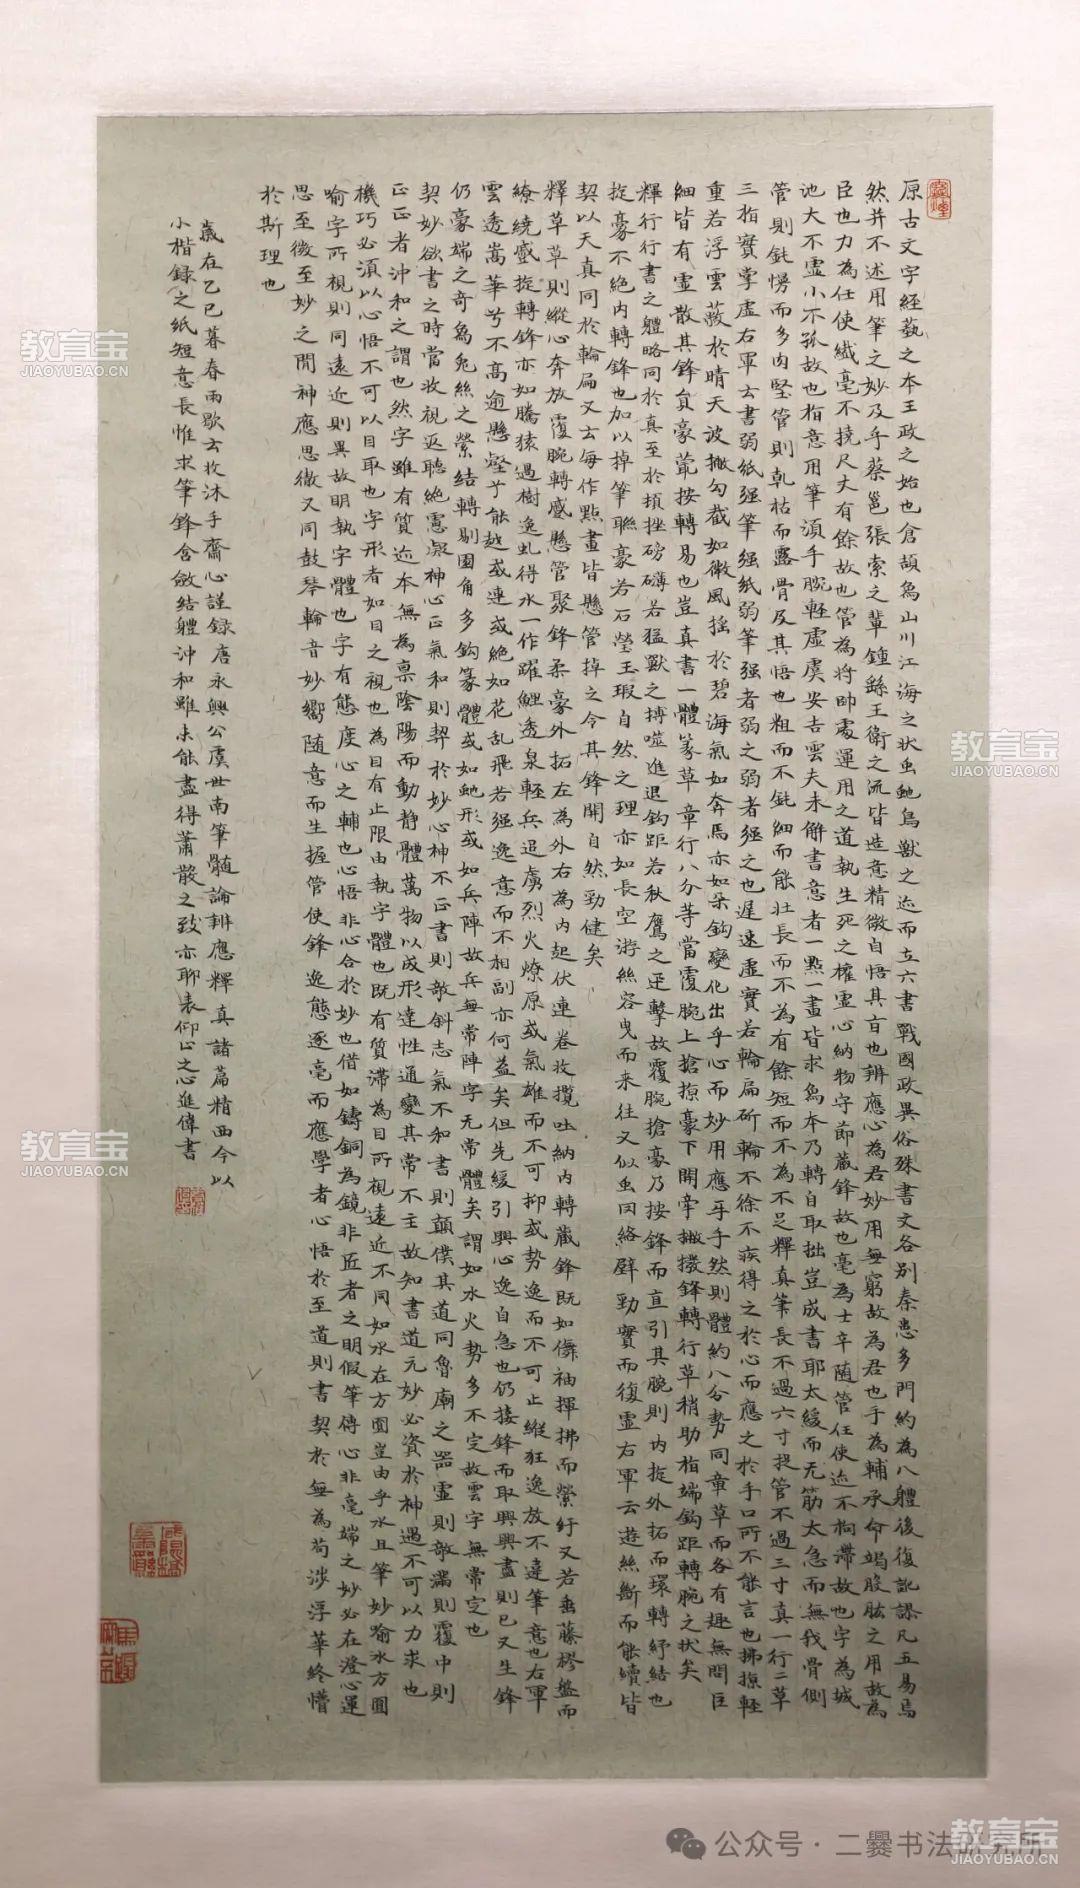 原古文字經藝之本王政之始也倉頡為山川江海之狀虫虵鳥獸之迹而立六書戰國政異俗殊書文各別秦患多門約為八體後復訛謬凡五易焉
然并不述用筆之妙及乎蔡邕張索之輩鍾繇王衛之流皆造意精微自悟其旨也辨應心為君妙用無窮故為君也手為輔承命竭股肱之用故為
臣也力為任使纖毫不撓尺丈有餘故也管為將帥處運用之道執生死之權靈心納物守節藏鋒故也毫為士卒随管任使迹不拘滯故也字為城
池大不虛小不孤故也指意用筆湏手腕輕虛虞安吉雲夫未解書意者一點一畫皆求為本乃轉自取拙豈成書耶太緩而无筋太急而無我骨側
管則鈍慢而多肉竪管則乹枯而露骨及其悟也粗而不鈍細而能壮長而不為有餘短而不為不足釋真筆長不過六寸捉管不過三寸真一行二草
三指實掌虛右軍云書弱紙强筆强紙弱筆强者弱之弱者强之也遲速虛實若輪扁斫輪不徐不疾得之於心而應之於手口所不能言也拂掠輕
重若浮雲蔽於晴天波撇勾截如微風摇於碧海氣如奔馬亦如朵鈎變化出乎心而妙用應乎手然則體約八分勢同章草而各有趣無問巨
細皆有虛散其鋒負豪蕝按轉易也豈真書一體篆草章行八分等當覆腕上搶掠豪下開牽撇撥鋒轉行草稍助指端鈎距轉腕之狀矣
釋行行書之體略同於真至於頓挫磅礴若猛獸之搏噬進退鈎距若秋鷹之迅擊故覆腕搶豪乃按鋒而直引其腕則内挓外拓而環轉紓結也
挓豪不絕内轉鋒也加以掉筆聯豪若石瑩玉瑕自然之理亦如長空游絲容曳而来往又似虫罔絡壁勁實而復虛右軍云遊絲斷而能續皆
契以天真同於輪扁又云每作點畫皆懸管掉之令其鋒開自然勁健矣
釋草草則縱心奔放覆腕轉慼懸管聚鋒柔豪外拓左為外右為内起伏連卷收攬吐納内轉藏鋒既如儛袖揮拂而縈紆又若垂藤樛盤而
繚繞蹙挓轉鋒亦如騰猿過樹逸虬得水一作躍鯉透泉輕兵追虜烈火燎原或氣雄而不可抑或勢逸而不可止縱狂逸放不違筆意也右軍
雲透嵩華兮不高逾懸壑兮能越或連或絶如花乱飛若强逸意而不相副亦何益矣但先緩引興心逸自急也仍接鋒而取興興盡則已又生鋒
仍豪端之奇為兔絲之縈結轉剔圓角多鈎篆體或如虵形或如兵陣故兵無常陣字无常體矣謂如水火勢多不定故雲字無常定也
契妙欲書之時當收視返聽絶慮凝神心正氣和則契於妙心神不正書則敧斜志氣不和書則顛仆其道同魯廟之器虛則敧滿則覆中則
正正者沖和之謂也然字雖有質迹本無為禀陰陽而動靜體萬物以成形達性通變其常不主故知書道元妙必資於神遇不可以力求也
機巧必湏以心悟不可以目取也字形者如目之視也為目有止限由執字體也既有質滯為目所視遠近不同如水在方圓豈由乎水且筆妙喻水方圓
喻字所視則同遠近則異故明執字體也字有態度心之輔也心悟非心合於妙也借如鑄銅為鏡非匠者之明假筆傳心非毫端之妙必在澄心運
思至微至妙之間神應思徹又同鼓琴輪音妙響随意而生握管使鋒逸態逐毫而應學者心悟於至道則書契於無為茍涉浮華終懵
於斯理也
歲在乙巳暮春雨歇云收沐手齋心謹録唐永興公虞世南筆髓論辨應釋真諸篇精西今以
小楷録之紙短意長惟求筆鋒含斂結體沖和雖未能盡得蕭散之致亦聊表仰止之心進偉書
教育宝
JIAOYUBAO.CN
教育宝
JIAOYUBAO.CN
教育宝
JIAOYUBAO.CN
公众号·二爨书法研究所
教育宝
JIAOYUBAO.CN